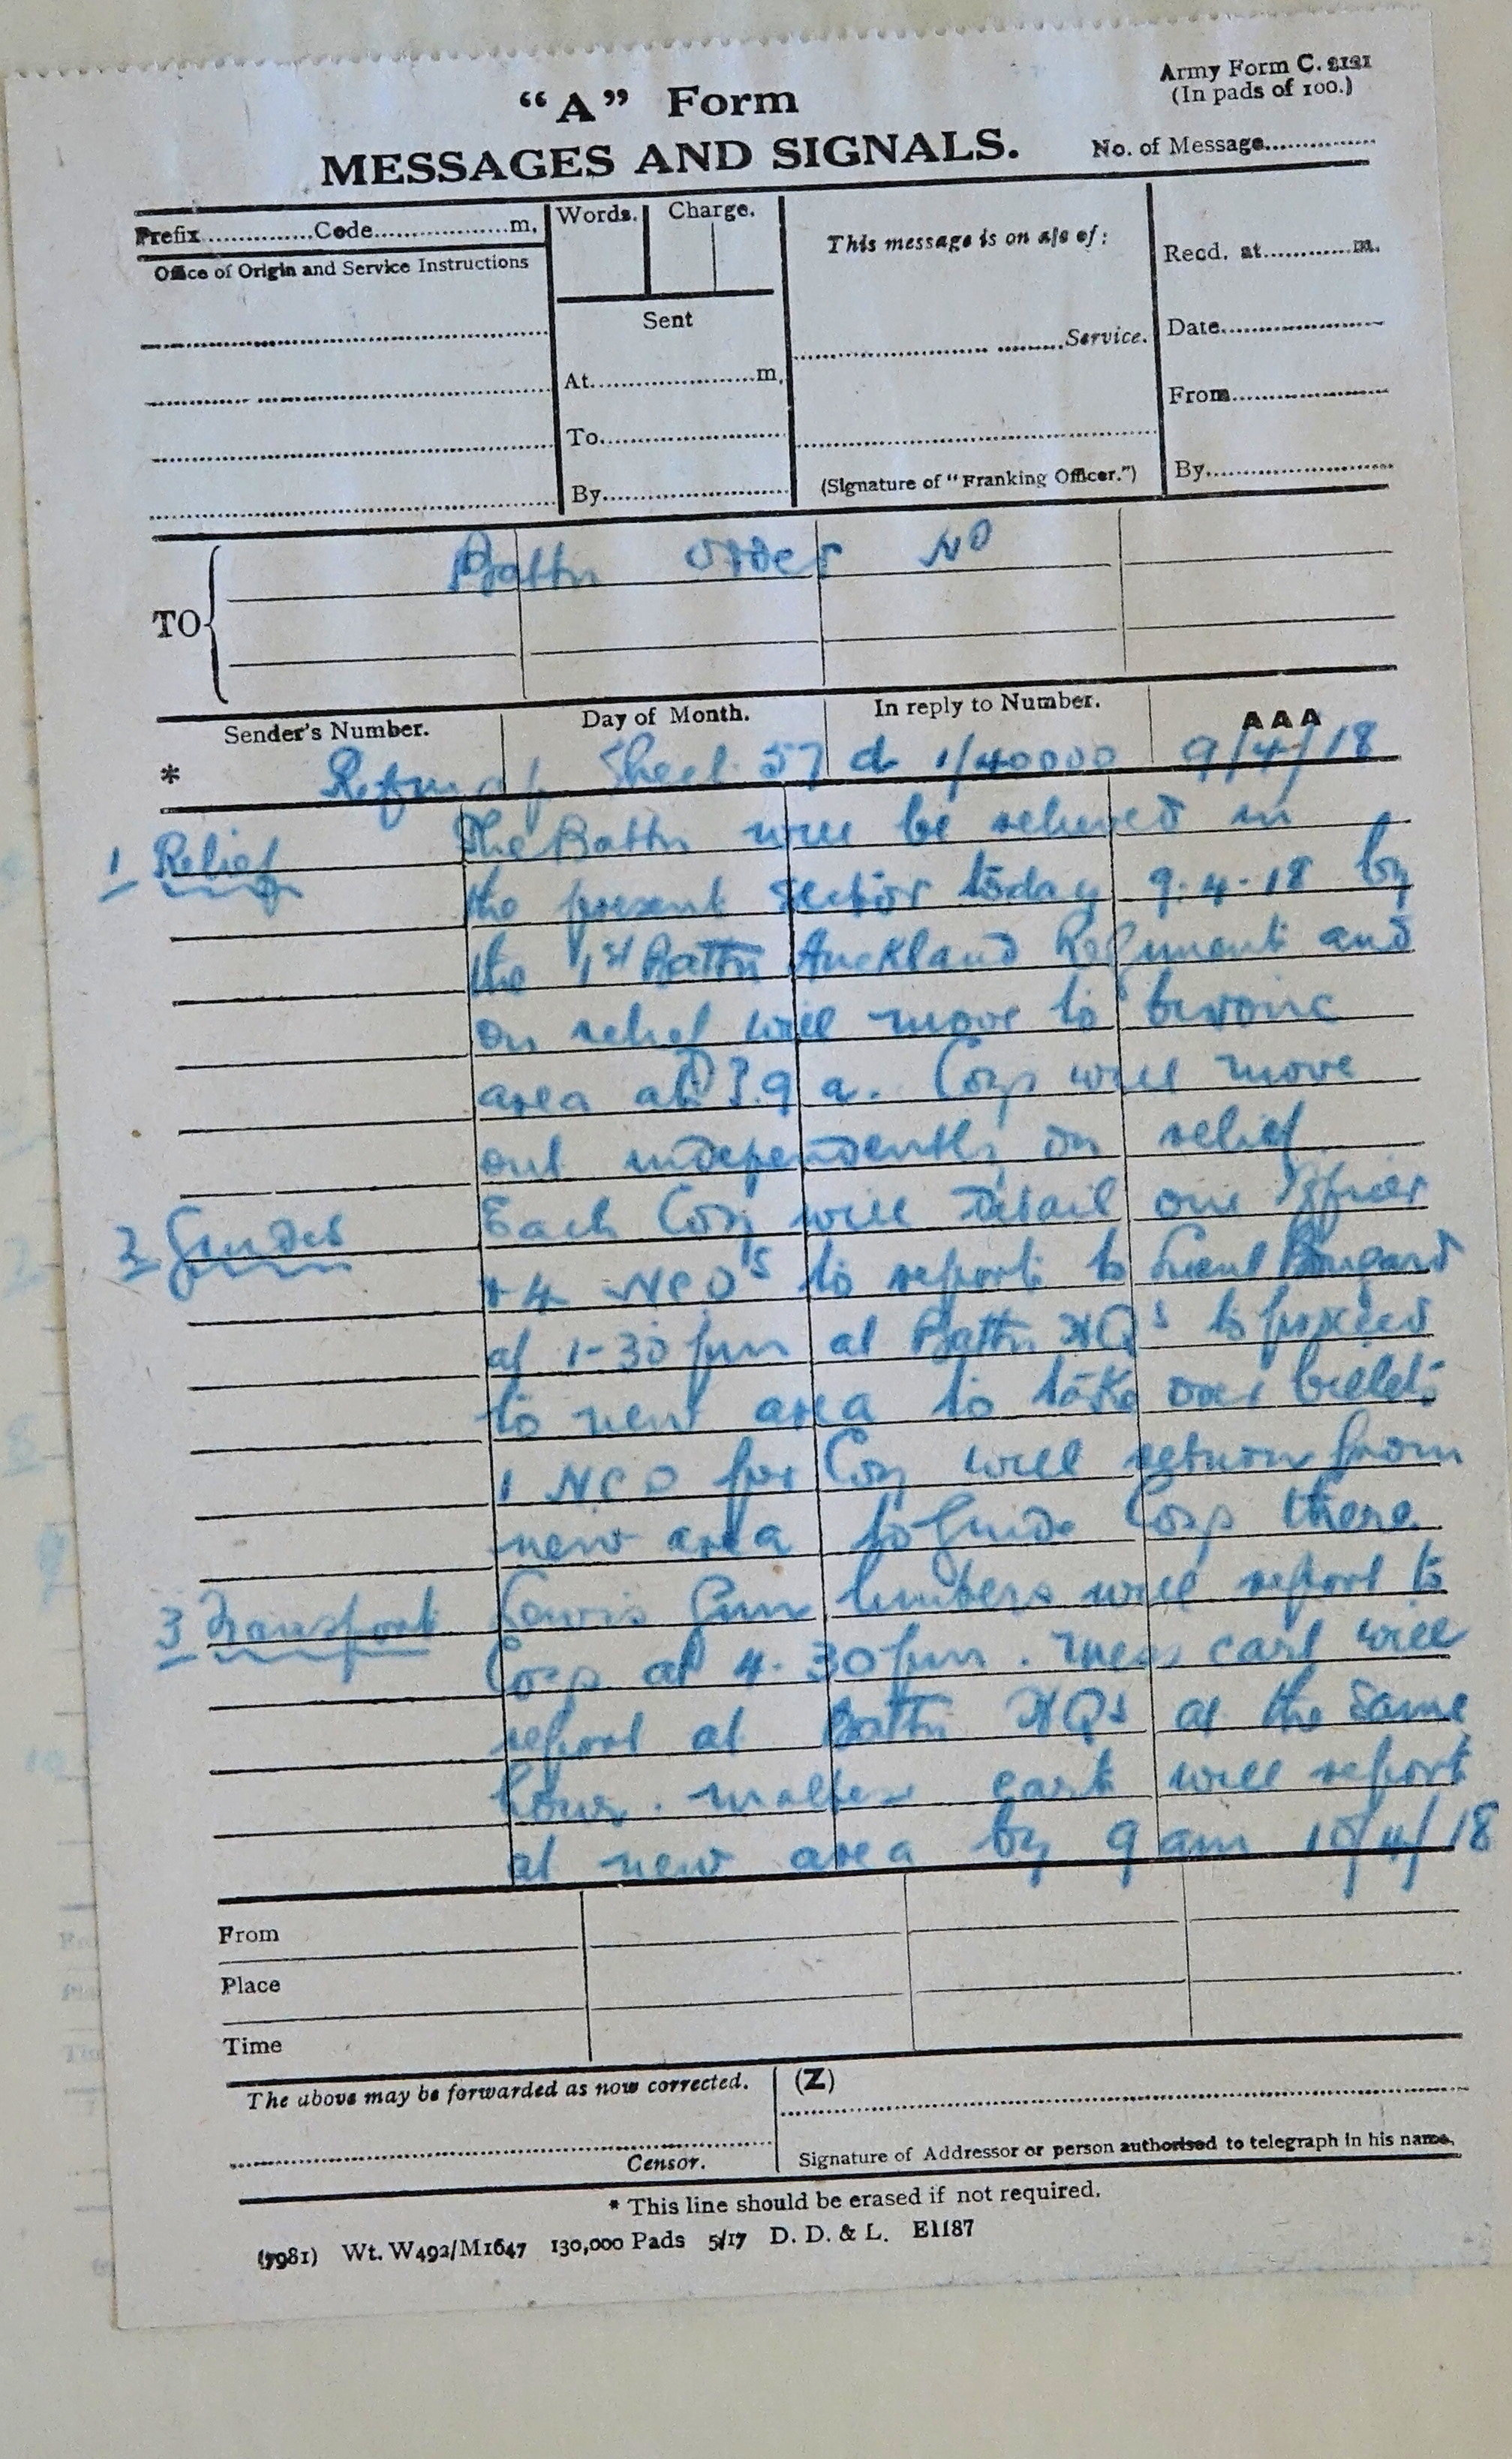 "A" Form
Army Form C. 2121
(In pads of 100.)
MESSAGES AND SIGNALS.
No. of Message
Prefix Code m.
Words. Charge.
This message is on a/c of:
Recd. at m.
Office of Origin and Service Instructions
Sent
Service.
Date
At m.
From
To
By
(Signature of "Franking Officer.")
By
TO
Battn Order No
Sender's Number. Day of Month. In reply to Number. AAA
* Sheet 57 d 1/40000 9/4/18
1 Relief The Battn will be relieved in
the present sector today 9.4.18 by
the 1st Battn Auckland Regiment and
on relief will move to bivouac
area at 9 a. Coys will move
out independently on relief
2 Guides Each Coy will detail one Officer
+ 4 NCOs to report to Lieut
at 1-30 pm at Battn HQs to proceed
to new area to take over billets
1 NCO per Coy will return from
new area to guide Coys there
3 Transport Lewis Gun limbers will report to
Coys at 4.30 pm. Mess cart will
report at Battn HQs at the same
hour. Maltese cart will report
at new area by 9 am 10/4/18
From
Place
Time
The above may be forwarded as now corrected. (Z)
Censor. Signature of Addressor or person authorised to telegraph in his name.
* This line should be erased if not required.
(7981) Wt. W492/M1647 130,000 Pads 5/17 D. D. & L. E1187